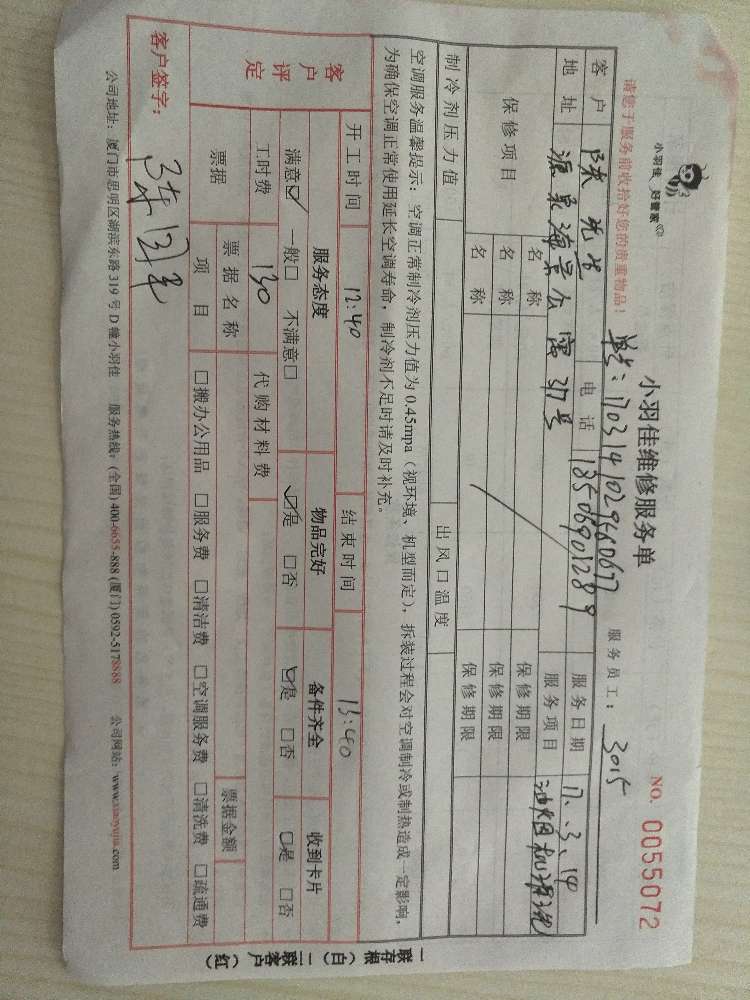 小羽佳 好管家
小羽佳维修服务单
NO. 0055072
请您于服务前收拾好您的贵重物品！
服务员工：3015
客户 陈先生 电话 18506901289 服务日期 17.3.14
地址 源泉海景公寓317号 服务项目
保修项目 名称 保修期限
名称 保修期限
名称 保修期限
制冷剂压力值 出风口温度
空调服务温馨提示：空调正常制冷剂压力值为0.45mpa（视环境、机型而定），拆装过程会对空调制冷或制热造成一定影响，
为确保空调正常使用延长空调寿命，制冷剂不足时请及时补充。
开工时间 12:40 结束时间 13:40
客户评定 服务态度 物品完好 备件齐全 收到卡片
满意☑ 一般□ 不满意□ ☑是 □否 ☑是 □否 □是 □否
工时费 130 代购材料费
票据 票据名称 票据金额
项目 □搬办公用品 □服务费 □清洁费 □空调服务费 □清洗费 □疏通费
客户签字：
公司地址：厦门市思明区湖滨东路319号D幢小羽佳 服务热线：(全国)400-6655-888 (厦门)0592-5178888 公司网站：www.xiaoyujia.com
一联存根（白）二联客户（红）